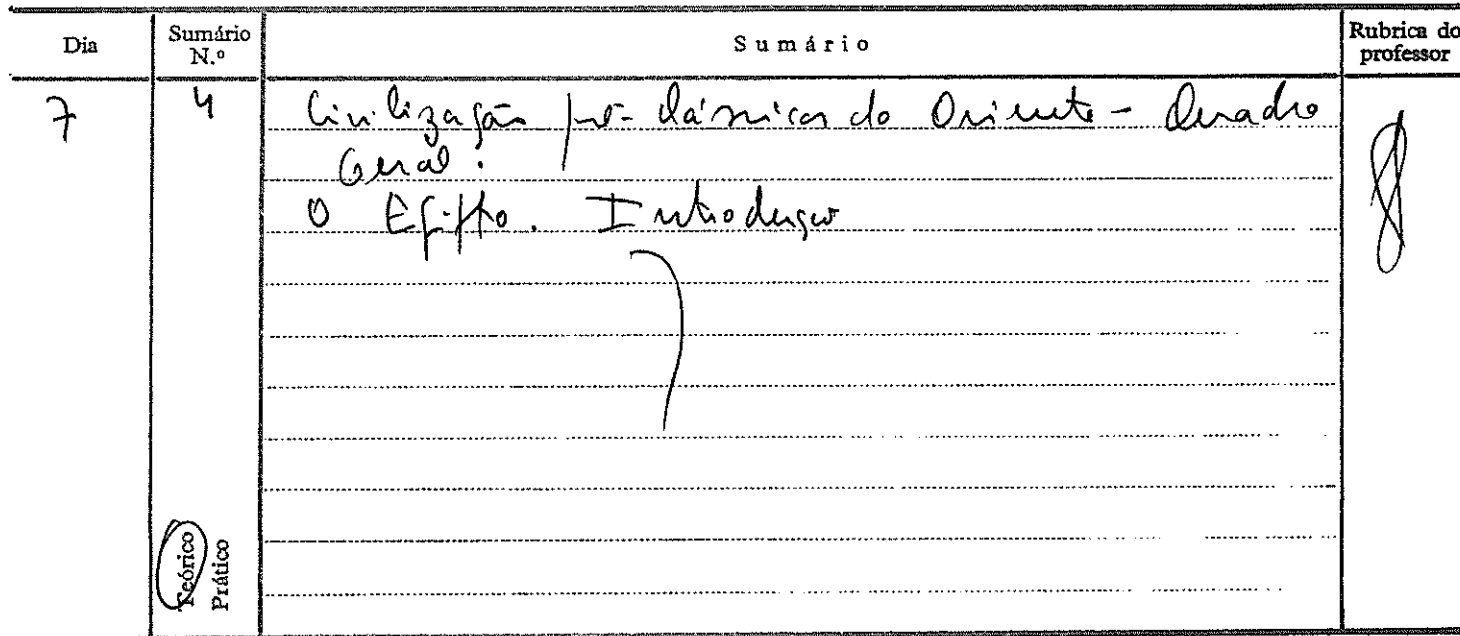 Dia
Sumário N.º
Sumário
Rubrica do professor
7
4
Civilização pré-clássicas do Oriente - Quadro
Geral.
O Egipto. Introdução
Teórico
Prático